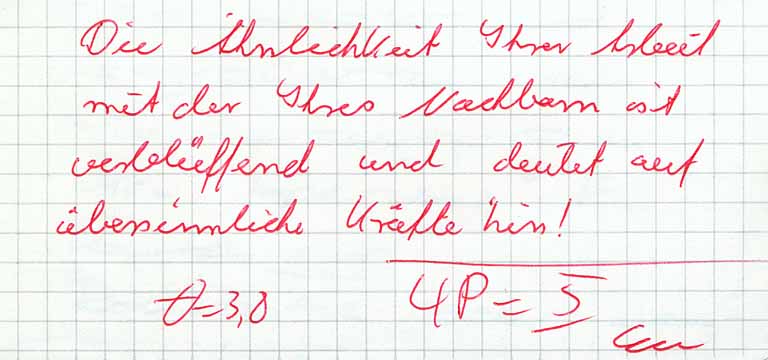 Die Ähnlichkeit Ihrer Arbeit
mit der Ihres Nachbarn ist
verblüffend und deutet auf
übersinnliche Kräfte hin!
Ø=3,0 4P = 5